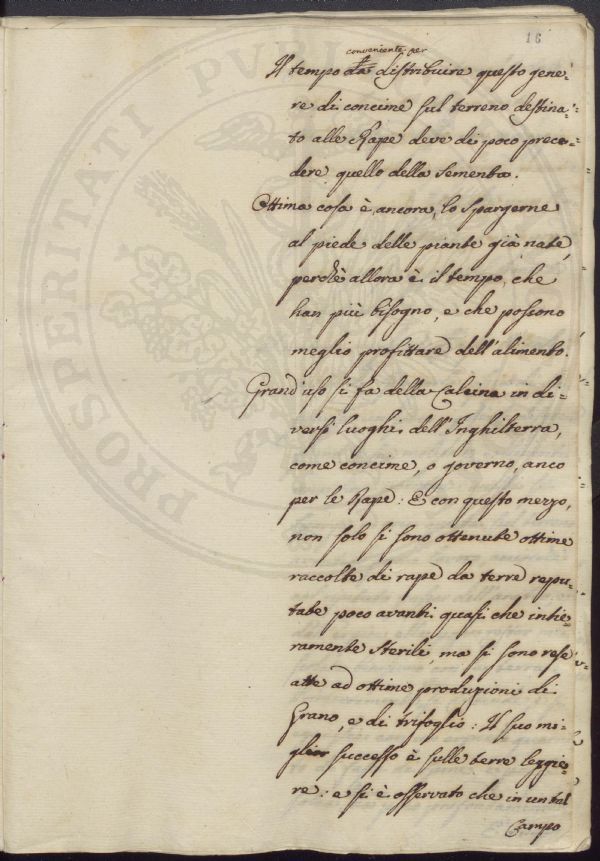 16
conveniente per
Il tempo da distribuire questo gene-
re di concime sul terreno destina-
to alle Rape deve di poco prece-
dere quello della sementa.
Ottima cosa è, ancora, lo spargerne
al piede delle piante già nate,
perchè allora è il tempo, che
han più bisogno, e che possono
meglio profittare dell'alimento.
Grand'uso si fa della Calcina in di-
versi luoghi dell'Inghilterra,
come concime, o governo, anco
per le Rape: E con questo mezzo,
non solo si sono ottenute ottime
raccolte di rape da terre repu-
tate poco avanti quasi che intie-
ramente sterili, ma si sono rese
atte ad ottime produzioni di
Grano, e di trifoglio: Il suo mi-
glior successo è sulle terre leggie-
re: e si è osservato che in un tal
Campo
PROSPERITATI PUBLI